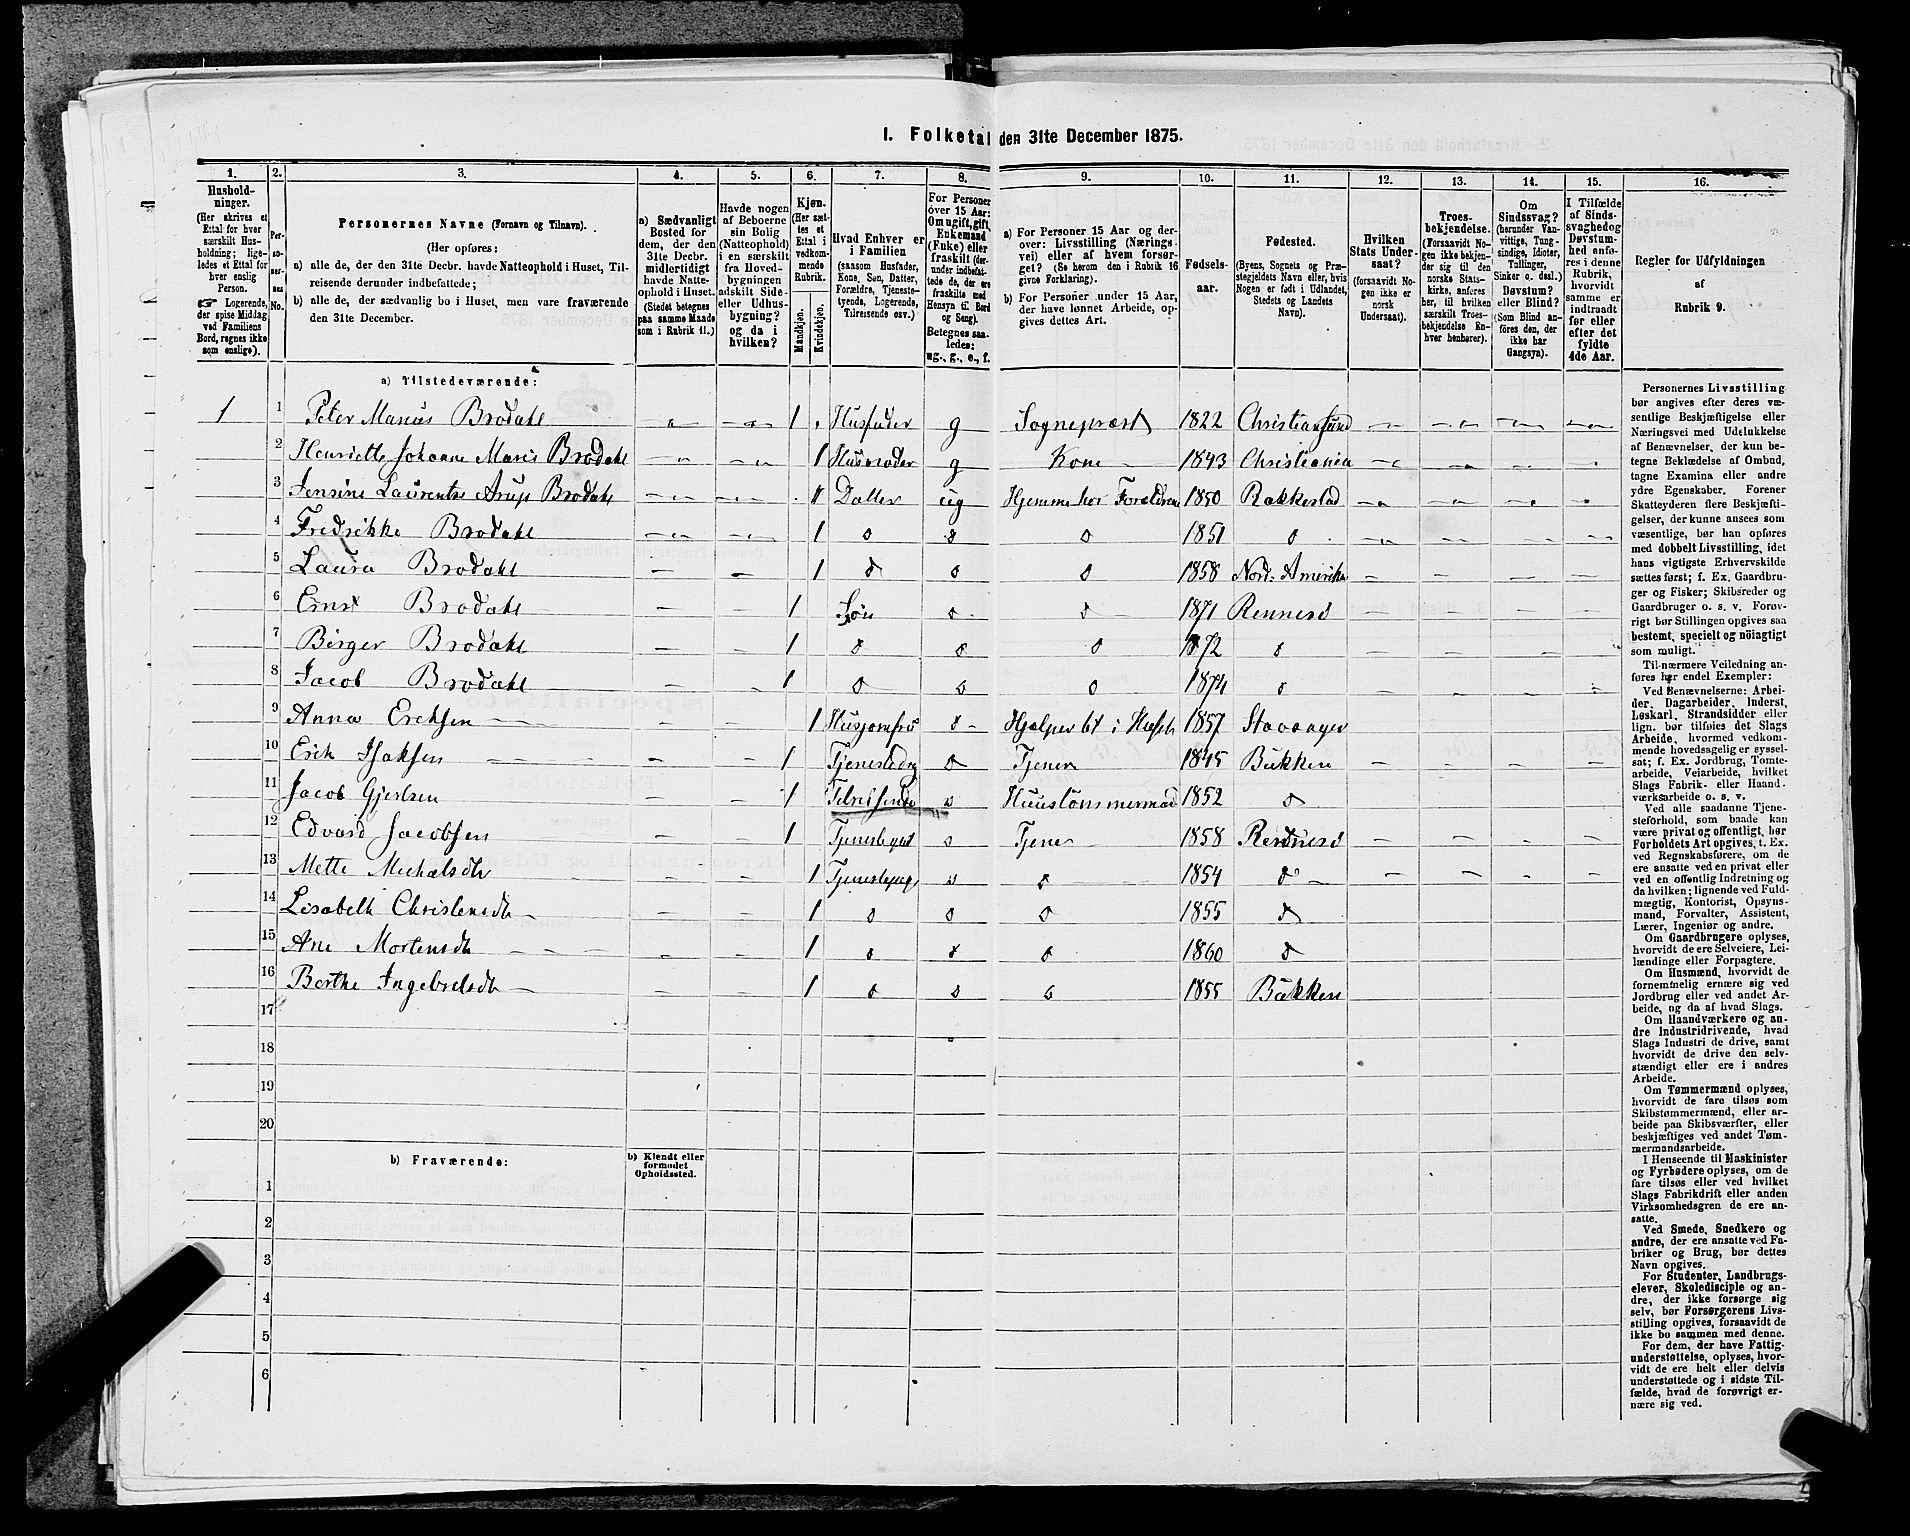 1. Folketal den 31te December 1875.
1.
Hushold-
ninger.
(Her skrives et
Ettal for hver
særskilt Hus-
holdning; lige-
ledes et Ettal for
hver enslig
Person.
☞ Logerende,
der spise Middag
ved Familiens
Bord, regnes ikke
som enslige).
2.
Per-
so-
ner-
nes
No.
3.
Personernes Navne (Fornavn og Tilnavn).
(Her opføres:
a) alle de, der den 31te Decbr. havde Natteophold i Huset, Til-
reisende derunder indbefattede;
b) alle de, der sædvanlig bo i Huset, men vare fraværende
den 31te December.
4.
a) Sædvanligt
Bosted for
dem, der den
31te Decbr.
midlertidigt
havde Natte-
ophold i Huset.
(Stedet betegnes
paa samme Maade
som i Rubrik 11.)
5.
Havde nogen
af Beboerne
sin Bolig
(Natteophold)
i en særskilt
fra Hoved-
bygningen
adskilt Side-
eller Udhus-
bygning?
og da i
hvilken?
6.
Kjøn.
(Her sæt-
tes et
Ettal i
vedkom-
mende
Rubrik.
Mandkjøn.
Kvindekjøn.
7.
Hvad Enhver er
i Familien
(saasom Husfader,
Kone, Søn, Datter,
Forældre, Tjeneste-
tyende, Logerende,
Tilreisende osv.)
8.
For Personer
over 15 Aar:
Om ugift, gift,
Enkemand
(Enke) eller
fraskilt (der-
under indbefat-
tede de, der ere
fraskilte med
Hensyn til Bord
og Seng).
Betegnes saa-
ledes:
ug., g., e., f.
9.
a) For Personer 15 Aar og der-
over: Livsstilling (Nærings-
vei) eller af hvem forsør-
get? (Se herom den i Rubrik 16
givne Forklaring).
b) For Personer under 15 Aar,
der have lønnet Arbeide, op-
gives dettes Art.
10.
Fødsels-
aar.
11.
Fødested.
(Byens, Sognets og Præ-
stegjeldets Navn eller, hvis
Nogen er født i Udlandet,
Stedets og Landets
Navn).
12.
Hvilken
Stats Under-
saat?
(forsaavidt No-
gen ikke er
norsk
Undersaat).
13.
Troes-
bekjendelse.
(Forsaavidt No-
gen ikke bekjen-
der sig til den
norske Stats-
kirke, anføres
her, til hvilken
særskilt Troes-
bekjendelse En-
hver henhører).
14.
Om
Sindssvag?
(herunder Van-
vittige, Tung-
sindige, Idioter,
Tullinger,
Sinker o. desl.)
Døvstum?
eller Blind?
(Som Blind an-
føres den, der
ikke har
Gangsyn).
15.
I Tilfælde
af Sinds-
svaghed og
Døvstum-
hed anfø-
res i denne
Rubrik,
hvorvidt
samme er
indtraadt
før eller
efter det
fyldte
4de Aar.
16.
Regler for Udfyldningen
af
Rubrik 9.
a) Tilstedeværende:
1 1 Peter Marius Brodahl 1 Husfader g Sogneprest 1822 Christiansund
2 Henriette Johanne Marie Brodahl 1 Husmoder g Kone 1843 Christiania
3 Jensine Laurentze Arup Brodahl 1 Datter ug Hjemme hos Forældrene 1850 Rakkestad
4 Fredrikke Brodahl 1 o o o 1851 o
5 Laura Brodahl 1 o o o 1858 Nord-Amerika
6 Ernst Brodahl 1 Søn o o 1871 Rennesø
7 Birger Brodahl 1 o o o 1872 o
8 Jacob Brodahl 1 o o o 1874 o
9 Anna Ericksen 1 Husjomfru o Hjælper til i Huset 1857 Stavanger
10 Erik Isaksen 1 o Tjener 1845 Bukken
11 Jacob Gjertsen 1 Tilreisende o Huustømmermand 1852 o
12 Edvard Jacobsen 1 o Tjener 1858 Rennesø
13 Mette Michelsdtr 1 o o 1854 o
14 Lisabeth Christensdtr 1 o o o 1855 o
15 Ane Mortensdtr 1 o o o 1860 o
16 Berthe Ingebretsdtr 1 o o o 1855 Bukken
17
18
19
20
b) Fraværende:
b) Kjendt eller
formodet
Opholdssted.
1
2
3
4
5
6
Personernes Livsstilling
bør angives efter deres væ-
sentlige Beskjæftigelse eller
Næringsvei med Udelukkelse
af Benævnelser, der kun be-
tegne Beklædelse af Ombud,
tagne Examina eller andre
ydre Egenskaber. Forener
Skatteyderen flere Beskjæfti-
gelser, der kunne ansees som
væsentlige, bør han opføres
med dobbelt Livsstilling, idet
hans vigtigste Erhvervskilde
sættes først; f. Ex. Gaardbru-
ger og Fisker; Skibsreder og
Gaardbruger o. s. v. Forøv-
rigt bør Stillingen opgives saa
bestemt, specielt og nöiagtigt
som muligt.
Til nærmere Veiledning an-
føres her endel Exempler:
Ved Benævnelserne: Arbei-
der, Dagarbeider, Inderst,
Løskarl, Strandsidder eller
lign. bør tilføies det Slags
Arbeide, hvormed vedkom-
mende hovedsagelig er syssel-
sat; f. Ex. Jordbrug, Tomte-
arbeide, Veiarbeide, hvilket
Slags Fabrik- eller Haand-
værksarbeide o. s. v.
Ved alle saadanne Tjene-
steforhold, som baade kan
være privat og offentligt, bør
Forholdets Art opgives, t. Ex.
ved Regnskabsførere, om de
ere ansatte ved en privat eller
ved en offentlig Indretning og
da hvilken; lignende ved Fuld-
mægtig, Kontorist, Opsyns-
mand, Forvalter, Assistent,
Lærer, Ingeniør og andre.
Om Gaardbrugere oplyses,
hvorvidt de ere Selveiere, Lei-
lændinge eller Forpagtere.
Om Husmænd, hvorvidt de
fornemmelig ernære sig ved
Jordbrug eller ved andet Ar-
beide, og da af hvad Slags.
Om Haandværkere og an-
dre Industridrivende, hvad
Slags Industri de drive, samt
hvorvidt de drive den selv-
stændigt eller ere i andres
Arbeide.
Om Tømmermænd oplyses,
hvorvidt de fare tilsøs som
Skibstømmermænd, eller ar-
beide paa Skibsværfter, eller
beskjæftiges ved andet Tøm-
mermandsarbeide.
I Henseende til Maskinister
og Fyrbødere oplyses, om de
fare tilsøs eller ved hvilket
Slags Fabrikdrift eller anden
Virksomhedsgren de ere an-
satte.
Ved Smede, Snedkere og
andre, der ere ansatte ved Fa-
briker og Brug, bør dettes
Navn opgives.
For Studenter, Landbrugs-
elever, Skoledisciple og an-
dre, der ikke forsørge sig
selv, bør Forsørgerens Livs-
stilling opgives, forsaavidt de
ikke bo sammen med denne.
For dem, der have Fattig-
understøttelse, oplyses, hvor-
vidt de ere helt eller delvis
understøttede og i sidste Til-
fælde, hvad de forøvrigt er-
nære sig ved.